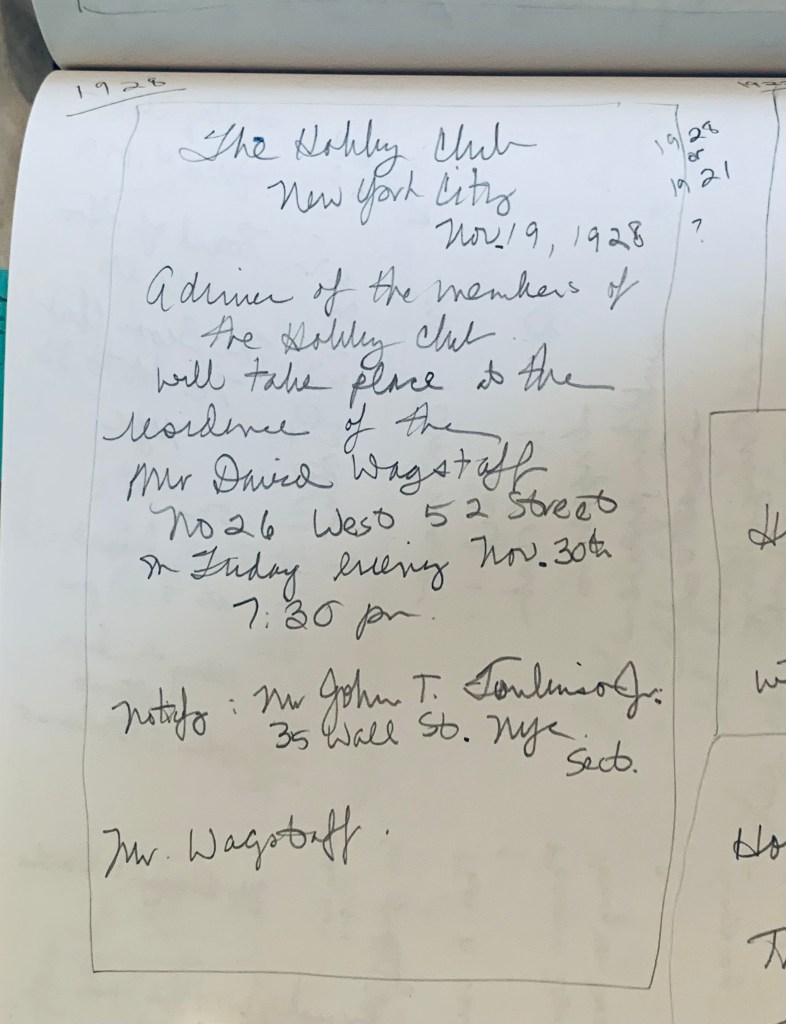 1928
The Hobby Club
New York City
Nov. 19, 1928
1928
or
1921
?
A dinner of the members of
the Hobby Club
will take place at the
residence of the
Mr David Wagstaff
No 26 West 52 Street
on Friday evening Nov. 30th
7:30 pm.
Notify: Mr John T. Tomlinson Jr.
35 Wall St. NYC
Sect.
Mr. Wagstaff.